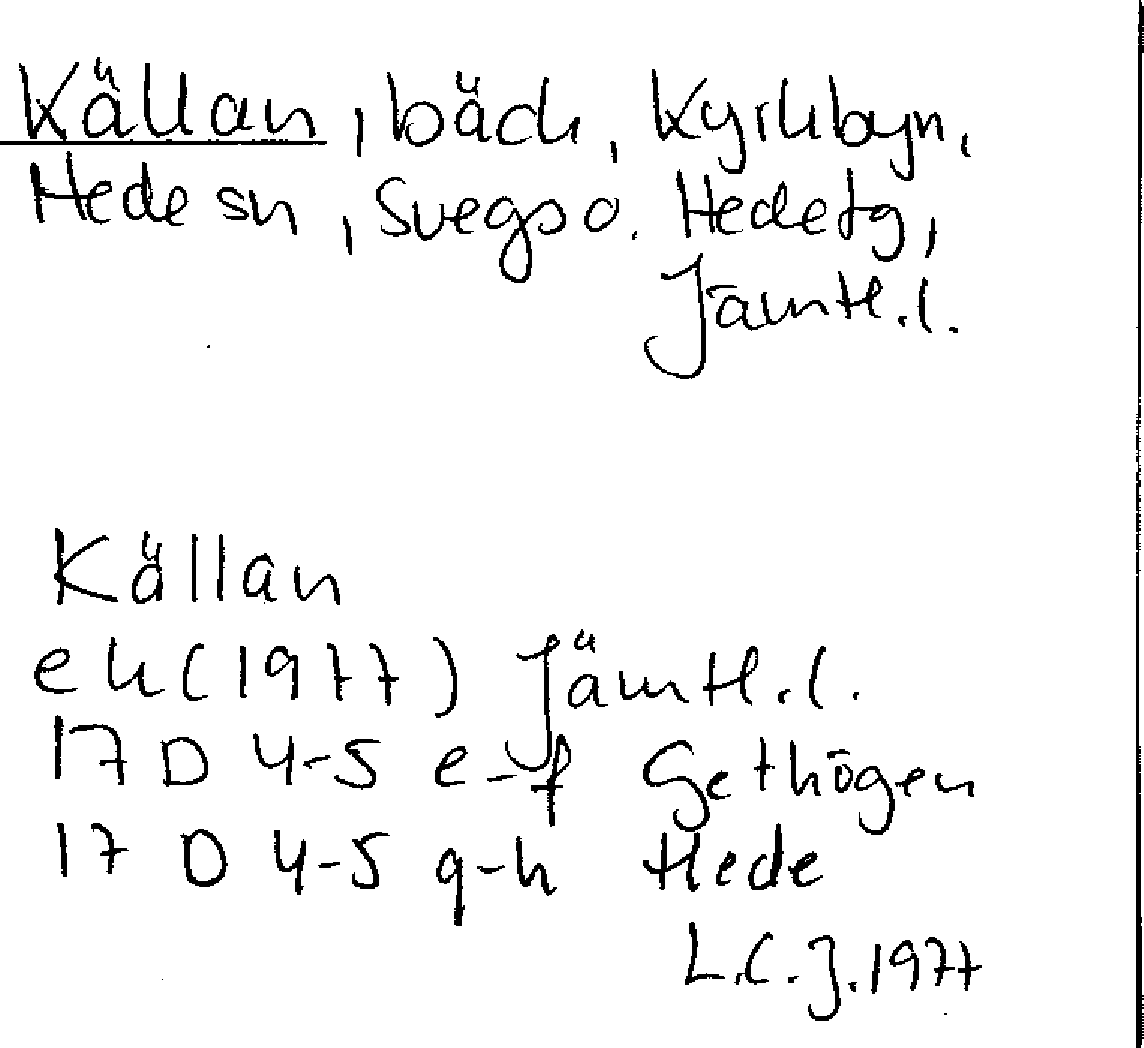 Källan, bäck, Kyrkbyn,
Hede sn, Svegs o. Hede tg,
Jämtl.l.
Källan
ek (1977) Jämtl.l.
17 D 4-5 e-f Gethögen
17 D 4-5 g-h Hede
L.C.J. 1977